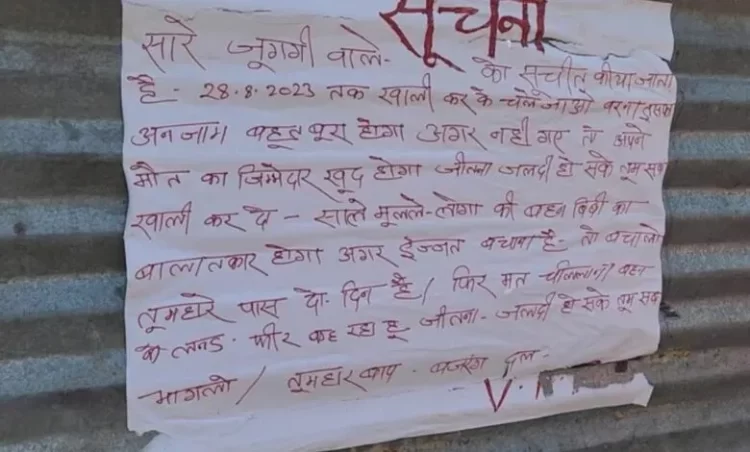 सूचना
सारे जुग्गी वाले- को सुचीत कीया जाता
है- 28.8.2023 तक खाली कर के चले जाओ वरना तुमारा
अनजाम बहुत बुरा होगा अगर नही गए तो अपने
मौत का जिम्मेदार खुद होगा जीतना जलदी हो सके तुम सब
खाली कर दे - साले मूलले-लोगा की बहन बिबी का
बालातकार होगा अगर इज्जत बचाना है- तो बचालो
तूमहारे पास दो दिन है/ फिर मत चीललाना बहन
के लनड. फीर कह रहा हू जीतना- जलदी हो सके तूम सब
भागलो / तूमहार बाप - बजरंग दल-
V.